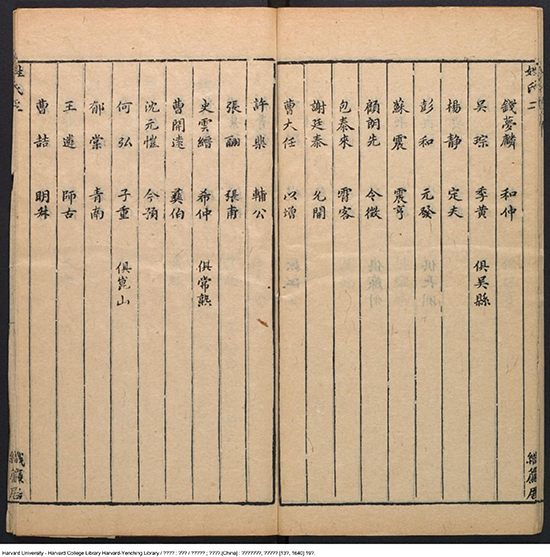 姓氏二
錢夢麟 和仲
吳琮 季黃 俱吳縣
楊靜 定夫
彭和 元發
蘇震 震亨
顧詗先 令微
包泰來 霄客
謝廷泰 允開
曹大任 以增
許樂 輔公
張翮 張甫
史雲繒 希仲 俱常熟
曹開遠 龔伯
沈元愷 今預
何弘 子重 俱崑山
郁棠 青南
王遴 師古
曹喆 明舜
姓氏二
Harvard University - Harvard College Library Harvard-Yenching Library / ???? : ??? / ????? ; ????.[China] : ???????, ????? [13?, 1640] 19?.